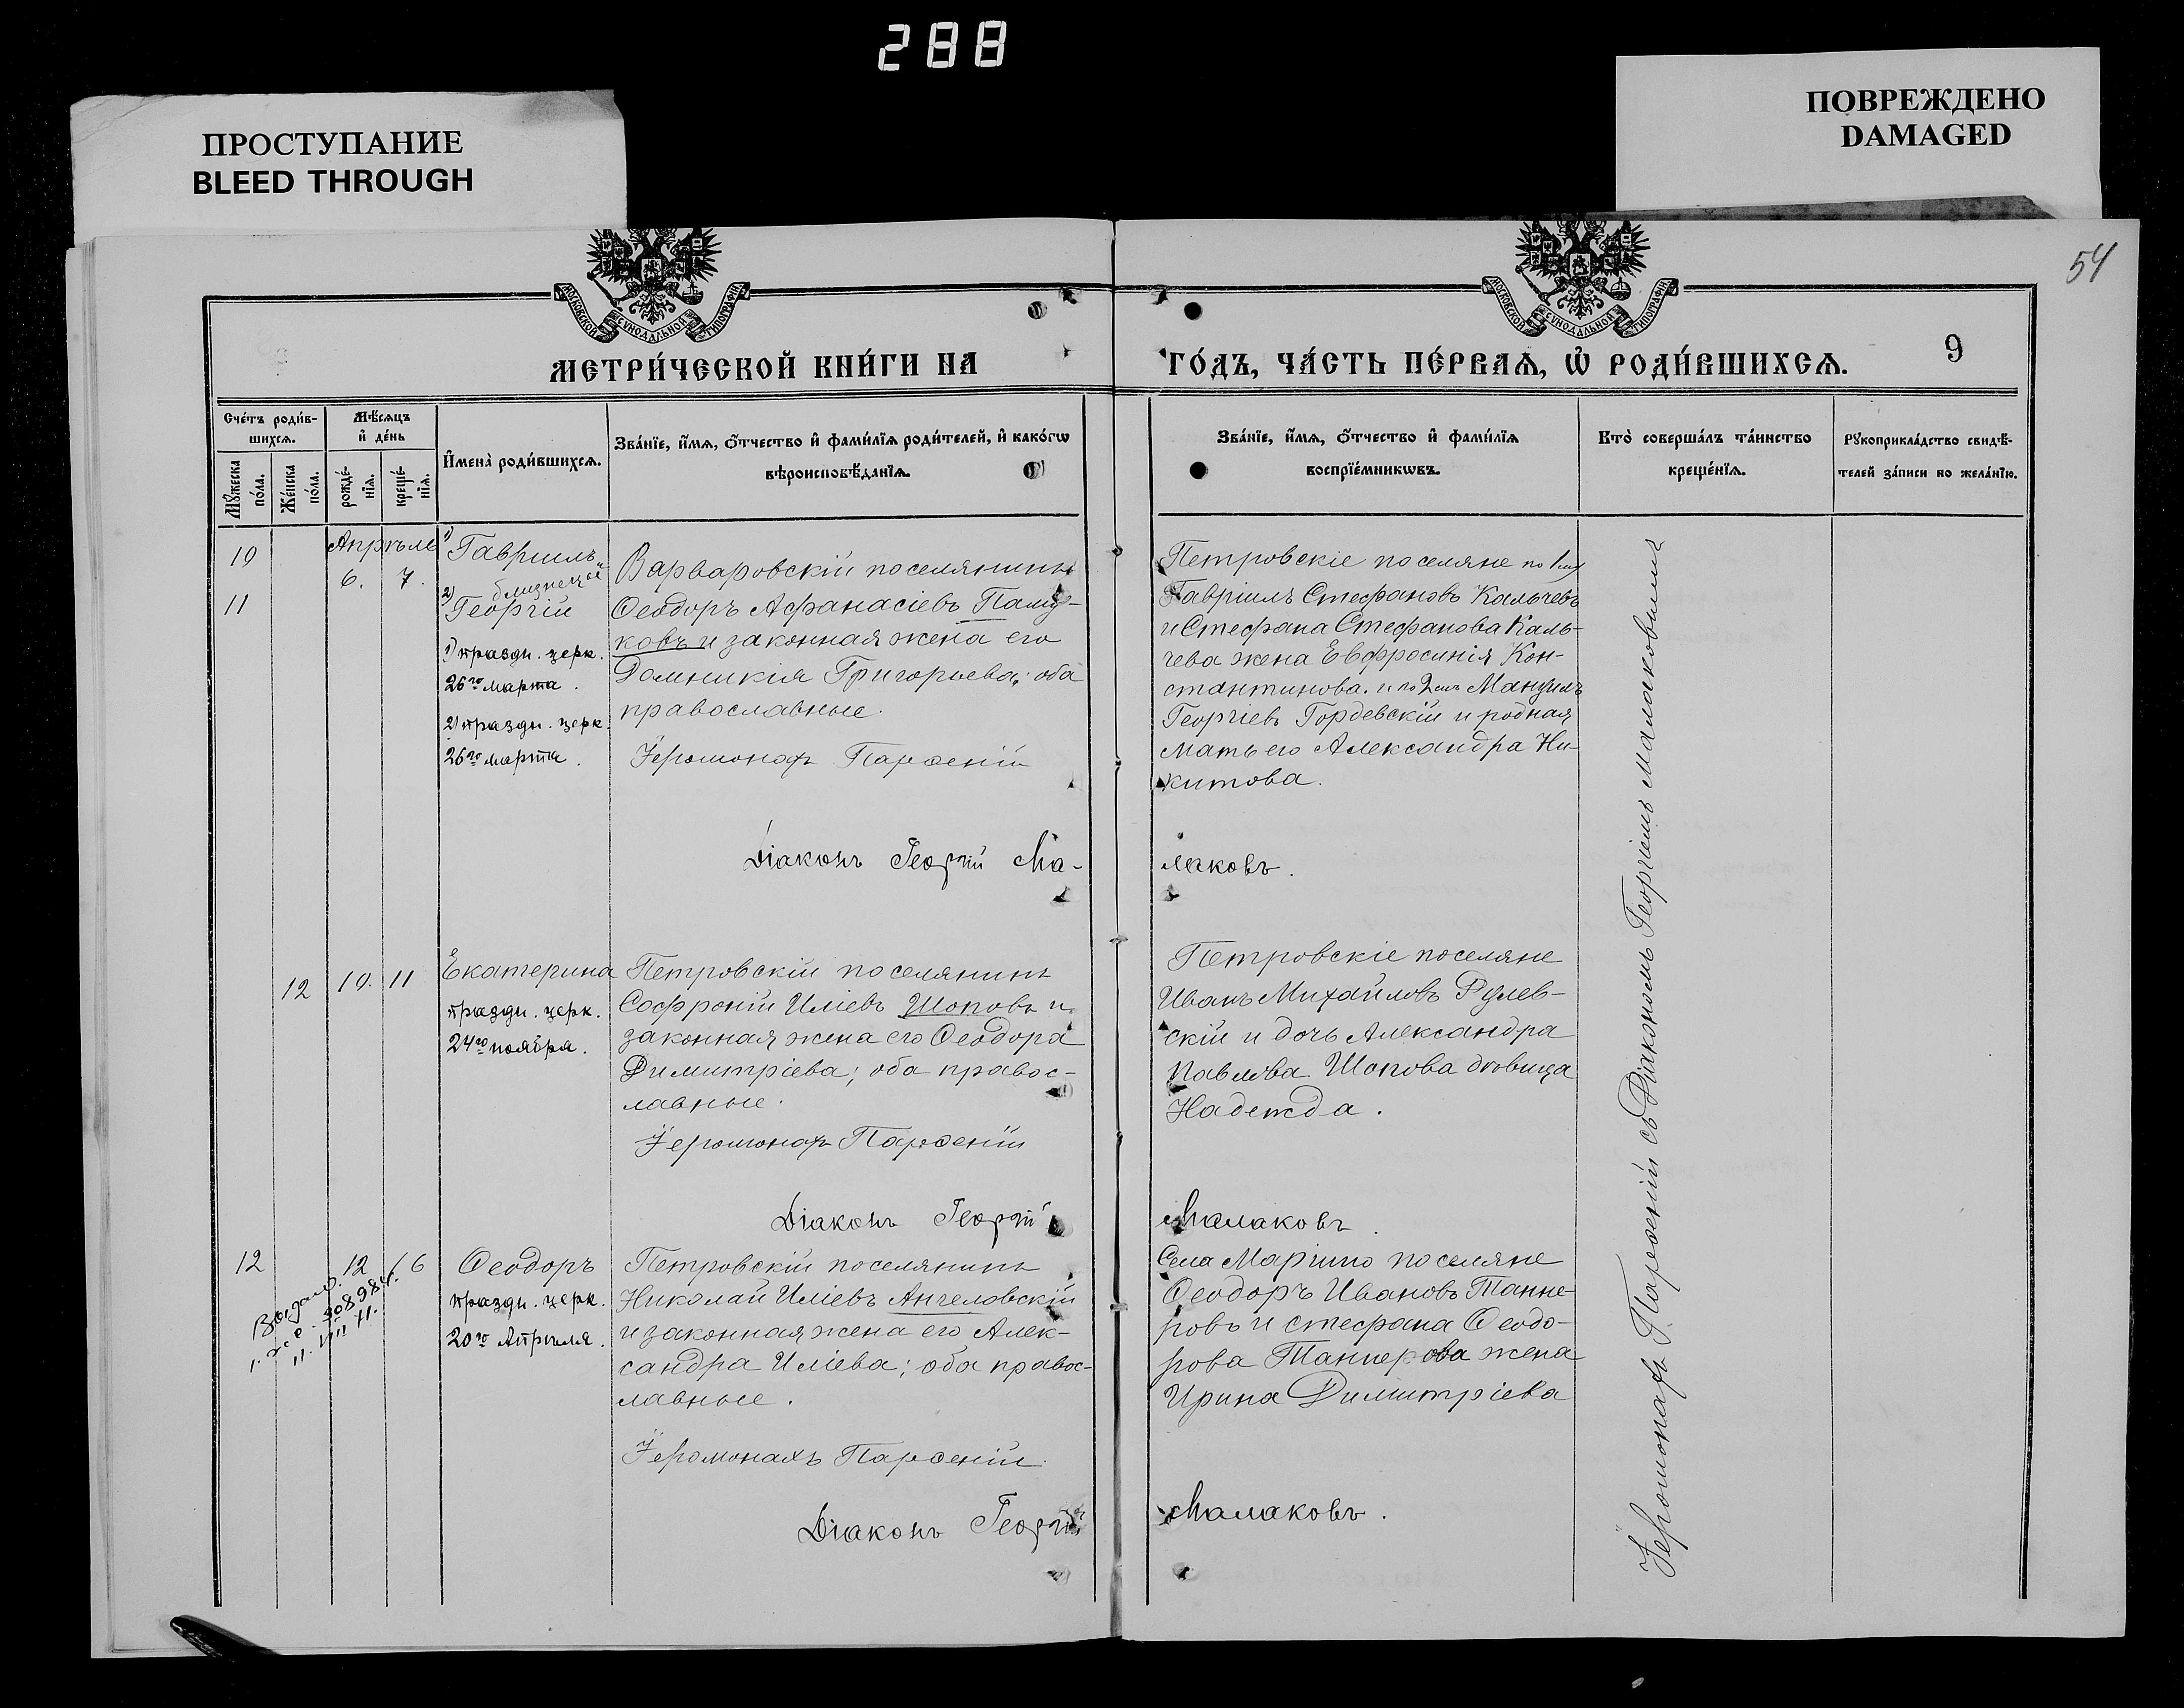 288
ПРОСТУПАНИЕ
BLEED THROUGH
ПОВРЕЖДЕНО
DAMAGED
54
МОСКОВСКОЙ СУНОДАЛЬНОЙ ТИПОГРАФІИ
МОСКОВСКОЙ СУНОДАЛЬНОЙ ТИПОГРАФІИ
МЕТРИ́ЧЕСКОЙ КНИ́ГИ НА
ГО́ДЪ, ЧА́СТЬ ПЕ́РВАѦ, Ѡ҆ РОДИ́ВШИХСѦ.
9
Сче́тъ роди́в-
шихсѧ.
Мѣ́сѧцъ
и҆ де́нь
Мꙋ́жеска
по́ла.
Же́нска
по́ла.
рожде́-
нїѧ.
креще́-
нїѧ.
И҆мена̀ роди́вшихсѧ.
Зва́нїе, и҆́мѧ, ѻ҆́тчество и҆ фами́лїѧ роди́телей, и҆ како́гѡ
вѣроисповѣ́данїѧ.
Зва́нїе, и҆́мѧ, ѻ҆́тчество и҆ фами́лїѧ
воспрїе́мникѡвъ.
Кто̀ соверша́лъ та́инство
креще́нїѧ.
Рꙋкоприкла́дство свидѣ́-
телей за́писи по жела́нїю.
10
11
Апрѣль
6. 7.
1) Гавріилъ и
близнецы
2) Георгій
1) праздн. церк.
26го марта.
2) праздн. церк.
26го марта.
Варваровскій поселянинъ
Ѳеодоръ Афанасіевъ Паму-
ковъ и законная жена его
Домникія Григорьева; оба
православные.
Іеромонахъ Парѳеній
Діаконъ Георгій Ма-
Петровскіе поселяне по 1му
Гавріилъ Стефановъ Кальчевъ
и Стефана Стефанова Каль-
чева жена Евфросинія Кон-
стантинова. и по 2му Мануилъ
Георгіевъ Гордевскій и родная
мать его Александра Ни-
китова.
лаковъ.
12 10. 11
Екатерина
праздн. церк.
24го ноября.
Петровскій поселянинъ
Софроній Иліевъ Шоповъ и
законная жена его Ѳеодора
Димитріева; оба правос-
лавные.
Іеромонахъ Парѳеній
Діаконъ Георгій
Петровскіе поселяне
Иванъ Михайловъ Рулев-
скій и дочь Александра
Павлова Шопова дѣвица
Надежда.
Малаковъ.
12 12 16
Ѳеодоръ
праздн. церк.
20го Апрѣля.
Петровскій поселянинъ
Николай Иліевъ Ангеловскій
и законная жена его Алек-
сандра Иліева; оба правос-
лавные.
Іеромонахъ Парѳеній.
Діаконъ Георгій
Села Маріино поселяне
Ѳеодоръ Ивановъ Танне-
ровъ и стефана Ѳеодо-
рова Таннерова жена
Ирина Димитріева
Малаковъ.
Іеромонахъ Парѳеній съ Діакономъ Георгіемъ Малаковымъ